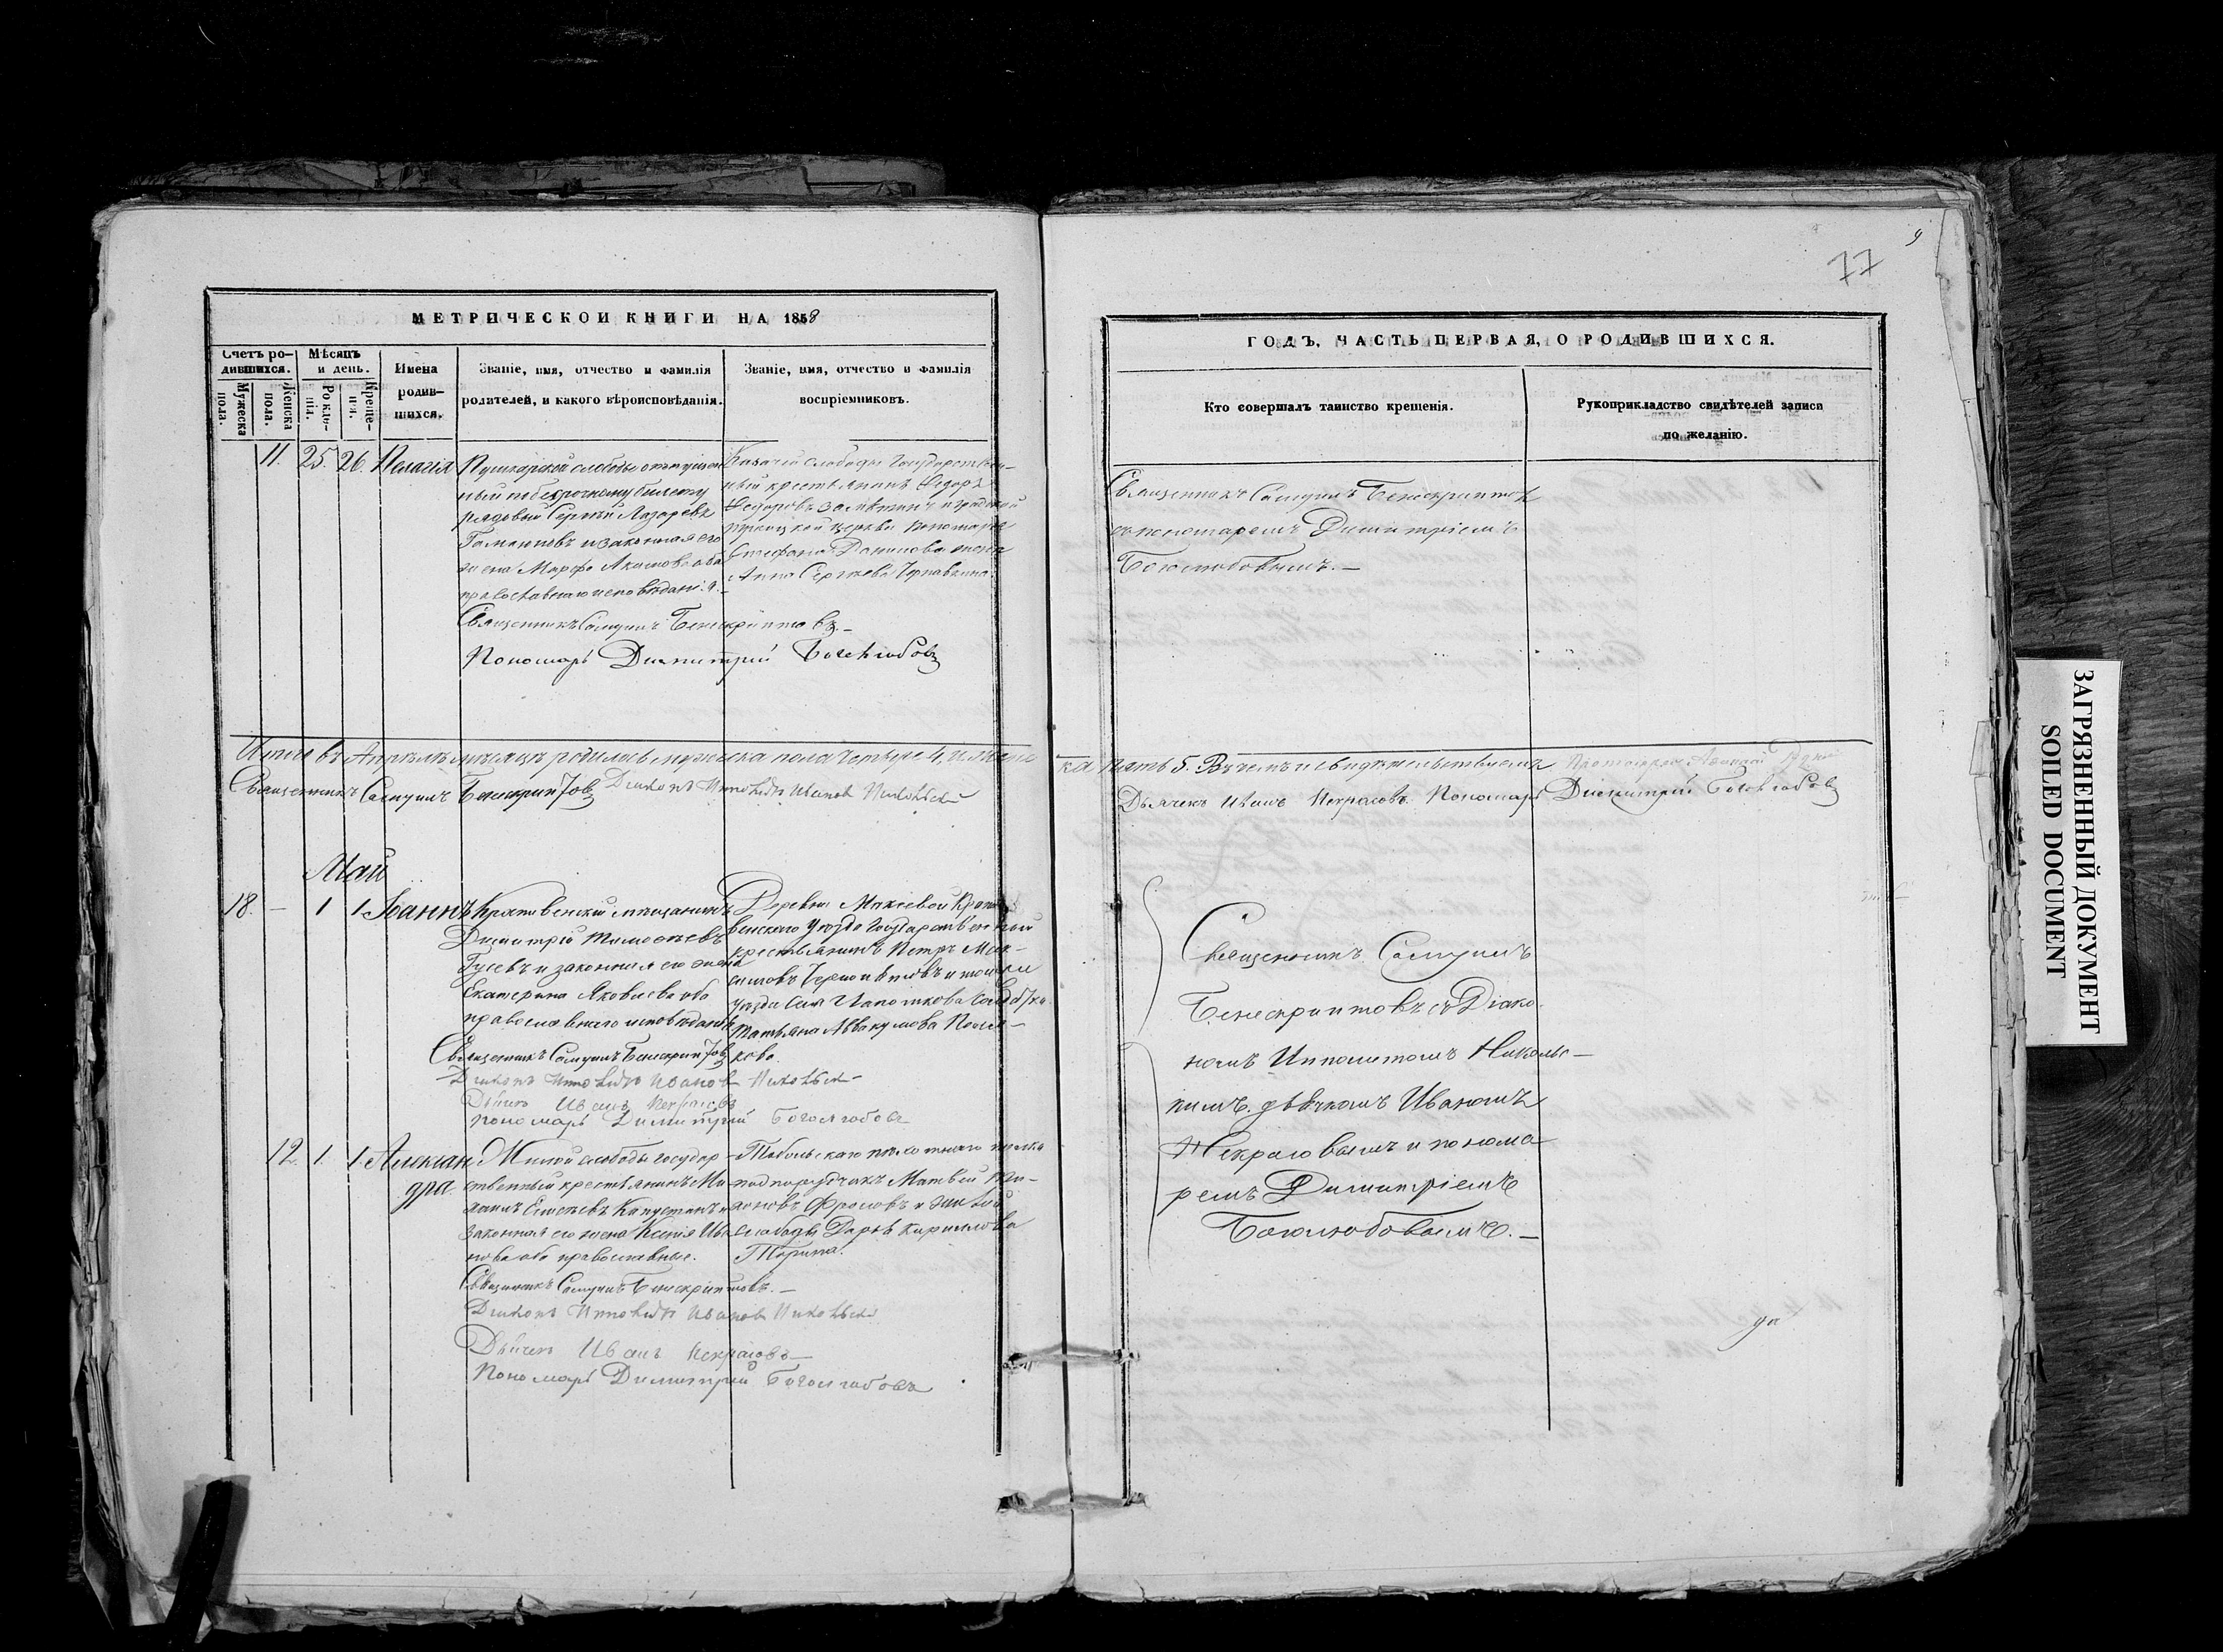 77
9
МЕТРИЧЕСКОИ КНИГИ НА 1858
Счетъ ро-
дившихся.
Мужеска пола.
Женска пола.
Мѣсяцъ
и день.
Рожде-
нія.
Креще-
нія.
Имена
родив-
шихся.
Званіе, имя, отчество и фамилія
родителей, и какого вѣроисповѣданія.
Званіе, имя, отчество и фамилія
воспріемниковъ.
11. 25. 26. Пелагія
Пушкарской слободы отпущен
ный по безсрочному билету
рядовый Сергѣй Лазаревъ
и законная его
жена Марфа Акимова оба
православнаго исповѣданія.
Священникъ Самуилъ Бенескриптовъ.
Пономарь Димитрій Боголюбовъ
Казачей слободы Государствен-
ный крестьянинъ Федоръ
Федоровъ и градской
Троицкой церкви пономаря
Стефана Данилова жена
Анна Сергѣева
Итого въ Апрѣлѣ мѣсяцѣ родилось мужеска пола четыре 4, и женс
Священникъ Самуилъ Бенескриптовъ Діаконъ Ипполитъ Ивановъ Никольскій
Май
18. — 1 1 Іоаннъ
Крапивенскій мѣщанинъ
Димитрій Тимофѣевъ
Гусевъ и законная его жена
Екатерина Яковлева оба
православнаго исповѣданія
Священникъ Самуилъ Бенескриптовъ
Діаконъ Ипполитъ Ивановъ Никольскій
Дьячекъ Иванъ Некрасовъ
Пономарь Димитрій Боголюбовъ
Деревни Макѣевой Крапи
венскаго уѣзда Государственный
крестьянинъ Петръ Мак-
симовъ и тогоже
уѣзда села
Татьяна Аввакумова Поля-
кова.
12. 1. 1. Алексан
дра.
слободы государ
ственный крестьянинъ Ми-
хаилъ Капустинъ и
законная его жена Ксенія Ива
нова оба православные.
Священникъ Самуилъ Бенескриптовъ.
Діаконъ Ипполитъ Ивановъ Никольскій
Дьячекъ Иванъ Некрасовъ
Пономарь Димитрій Боголюбовъ
Тобольскаго пѣхотнаго полка
подпоручикъ Матвѣй
Фроловъ и
слободы Дарья Кирилова
ГОДЪ, ЧАСТЬ ПЕРВАЯ, О РОДИВШИХСЯ.
Кто совершалъ таинство крещенія.
Рукоприкладство свидѣтелей записи
по желанію.
Священникъ Самуилъ Бенескриптовъ
съ пономаремъ Димитріемъ
Боголюбовымъ. —
ка пять 5. Въ чемъ и свидѣтельствуемъ
Дьячекъ Иванъ Некрасовъ Пономарь Димитрій Боголюбовъ
Священникъ Самуилъ
Бенескриптовъ съ Діако-
номъ Ипполитомъ Николь-
кимъ. дьячкомъ Иваномъ
Некрасовымъ и понома
ремъ Димитріемъ
Боголюбовымъ. —
ЗАГРЯЗНЕННЫЙ ДОКУМЕНТ
SOILED DOCUMENT